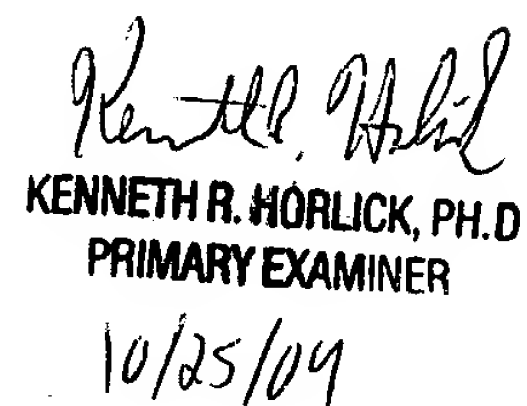 Kenneth R. Horlick
KENNETH R. HORLICK, PH.D
PRIMARY EXAMINER
10/25/04